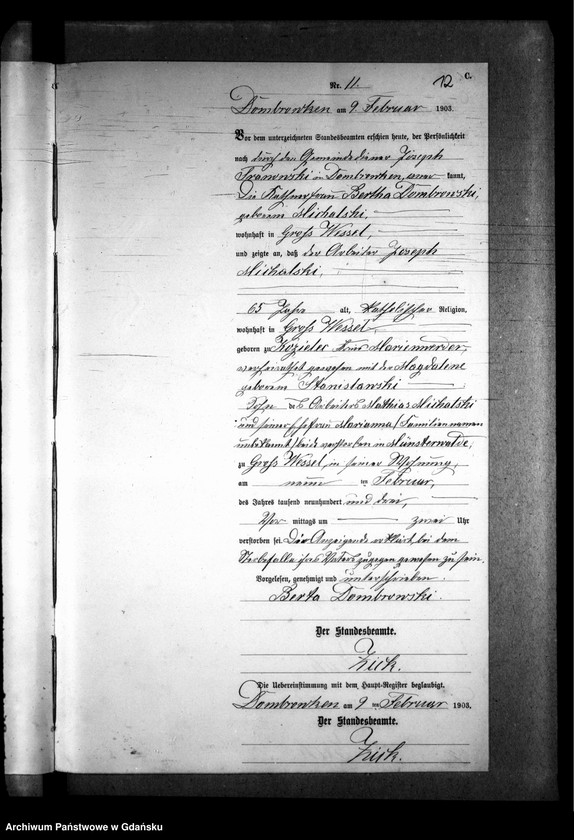 C.
12
Nr. 11.
Dombrowken am 9. Februar 1903.
Vor dem unterzeichneten Standesbeamten erschien heute, der Persönlichkeit
nach durch den Gemeindediener Joseph
in Dombrowken, kannt,
Die Käthnerfrau Bertha Dombrowski,
geborene Michalski,
wohnhaft in Groß Wessel,
und zeigte an, daß der Arbeiter Joseph
Michalski,
65 Jahre alt, katholischer Religion,
wohnhaft in Groß Wessel,
geboren zu Kozielec Kreis Marienwerder,
verheirathet gewesen mit der Magdalene
geborene Stanislawski
Sohn des Arbeiters Mathias Michalski
und seiner Ehefrau Marianna (Familiennamen
unbekannt) beide verstorben in Münsterwalde,
zu Groß Wessel, in seiner Wohnung,
am Februar,
des Jahres tausend neunhundert und drei,
Vor mittags um zwei Uhr
verstorben sei. Die Anzeigende erklärt bei dem
Sterbefalle ihres Vaters zugegen gewesen zu sein.
Vorgelesen, genehmigt und unterschrieben.
Berta Dombrowski.
Der Standesbeamte.
Zick.
Die Uebereinstimmung mit dem Haupt-Register beglaubigt.
Dombrowken am 9 ten Februar 1903.
Der Standesbeamte.
Zick.
Archiwum Państwowe w Gdańsku